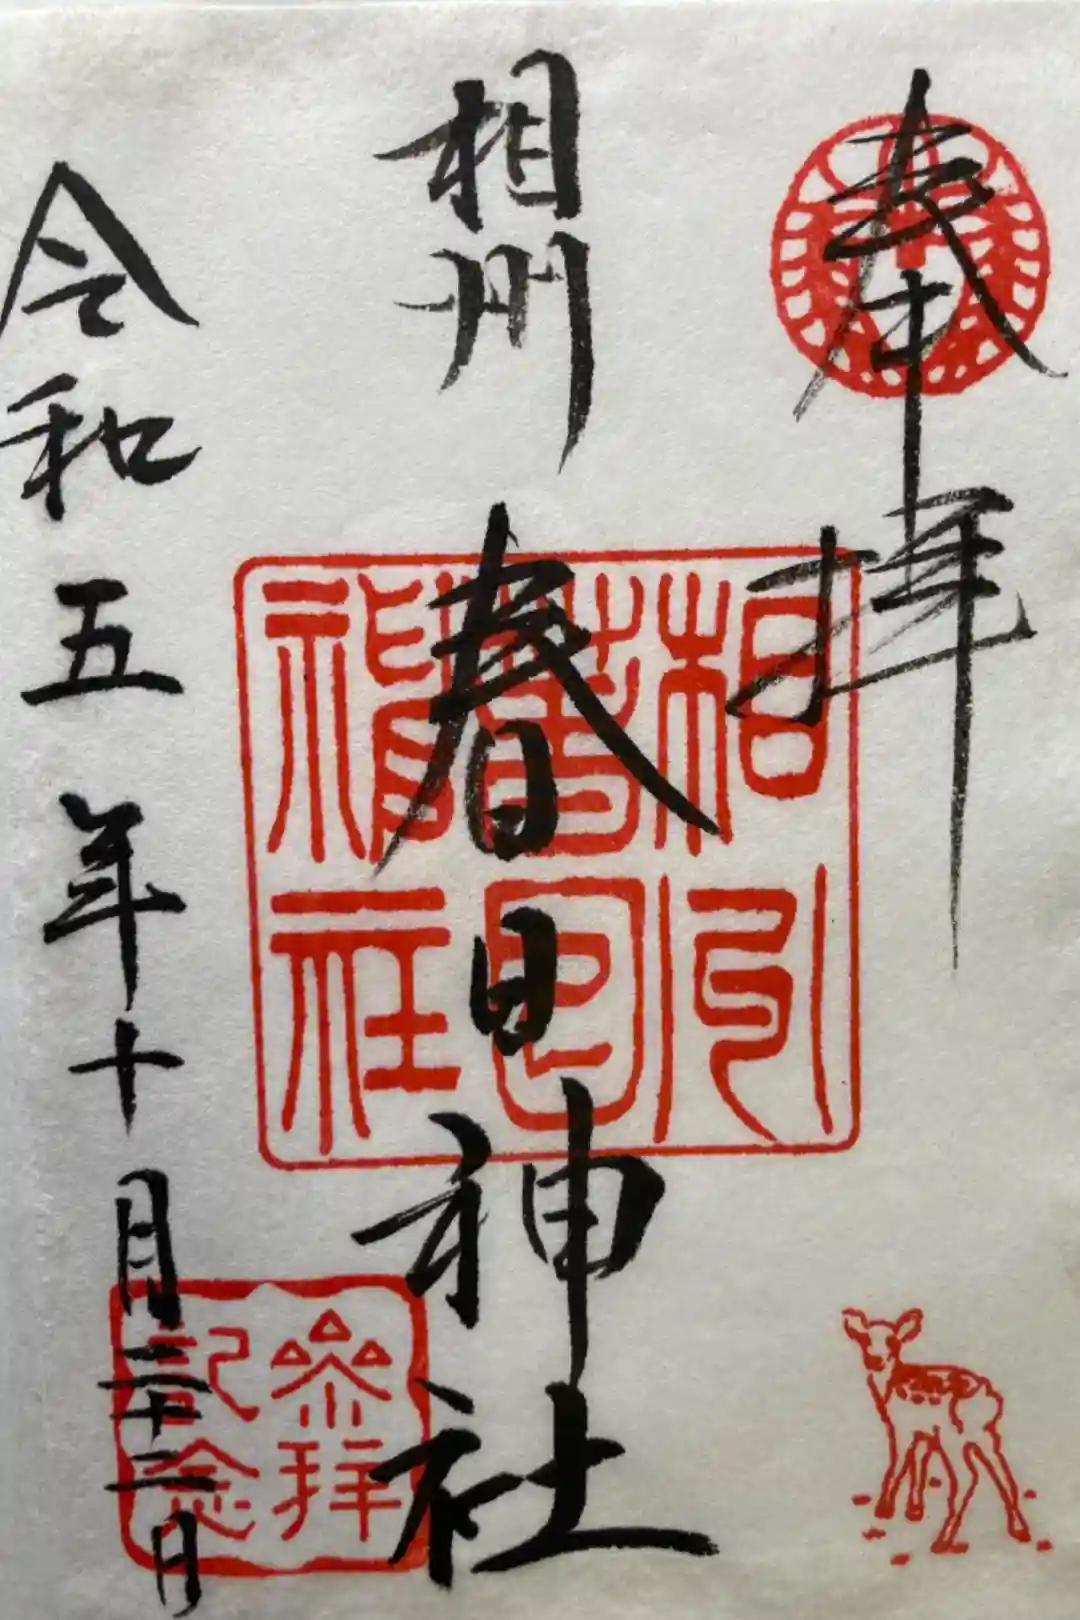 奉拝
相州 春日神社
令和五年十月二十二日
相州
春日
神社
参拝
記念